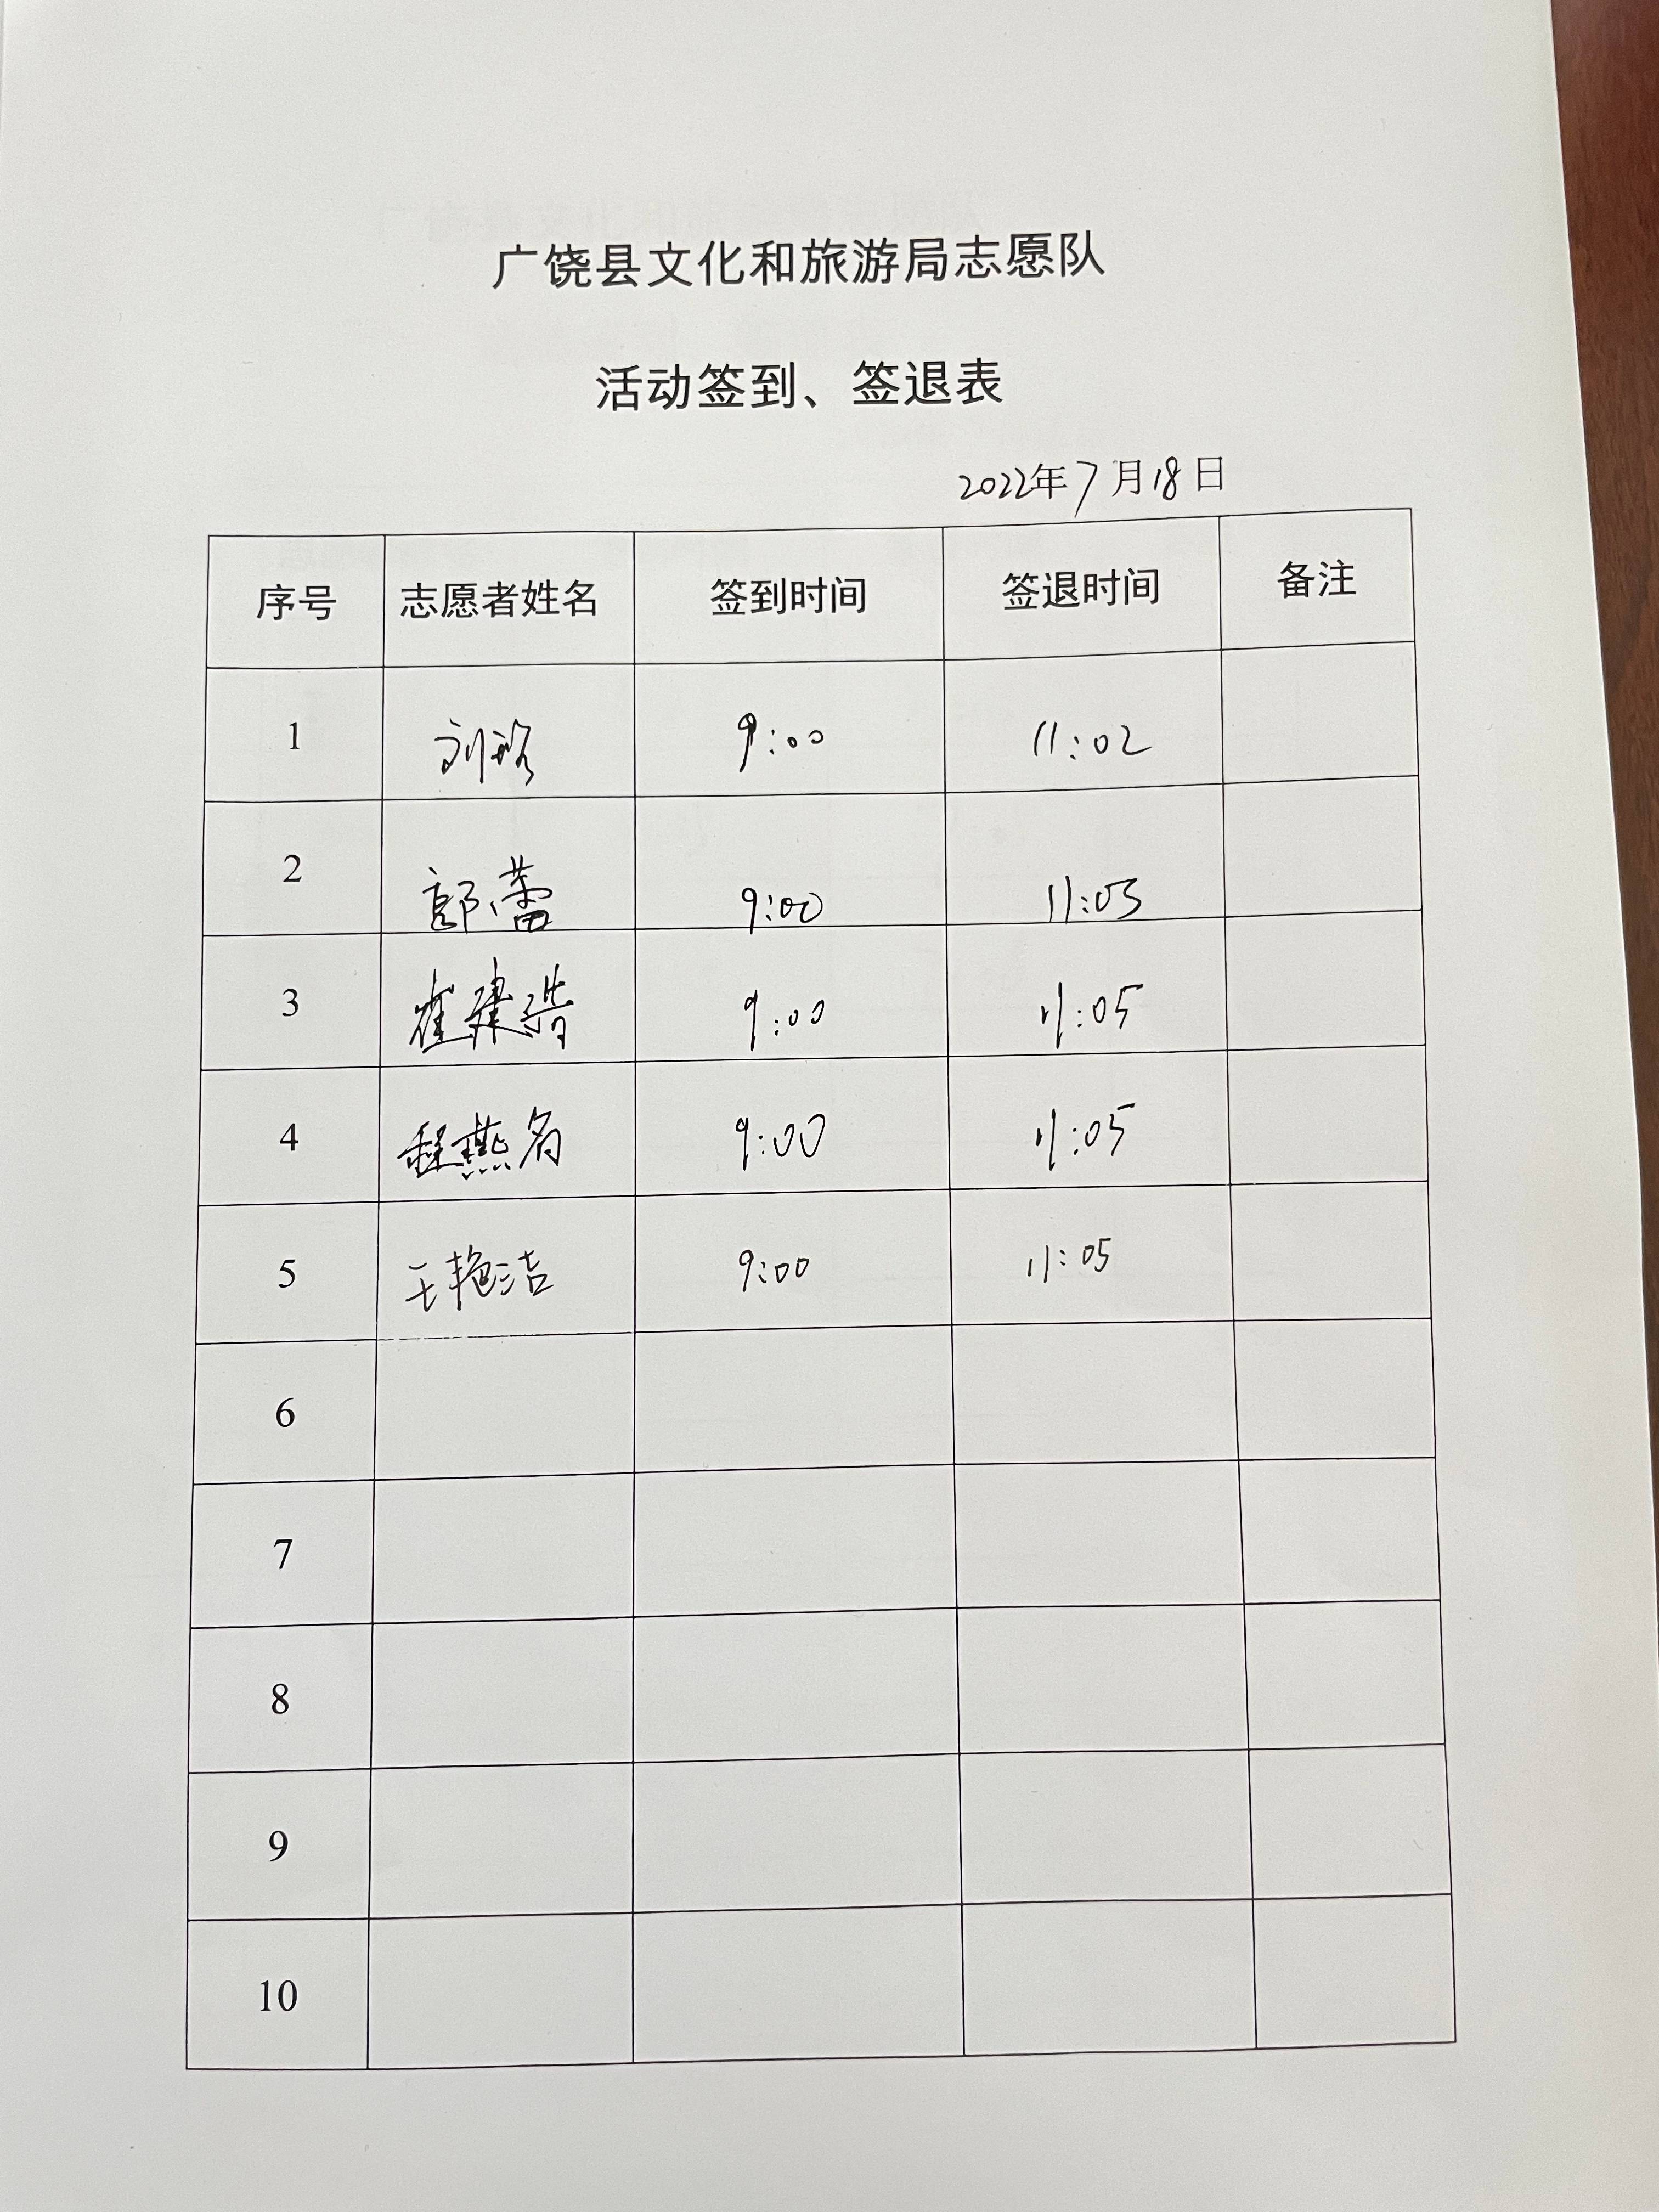 广饶县文化和旅游局志愿队
活动签到、签退表
2022年7月18日
序号 志愿者姓名 签到时间 签退时间 备注
1 刘 9:00 11:02
2 郎蕾 9:00 11:03
3 崔建浩 9:00 11:05
4 程燕名 9:00 11:05
5 王艳洁 9:00 11:05
6
7
8
9
10